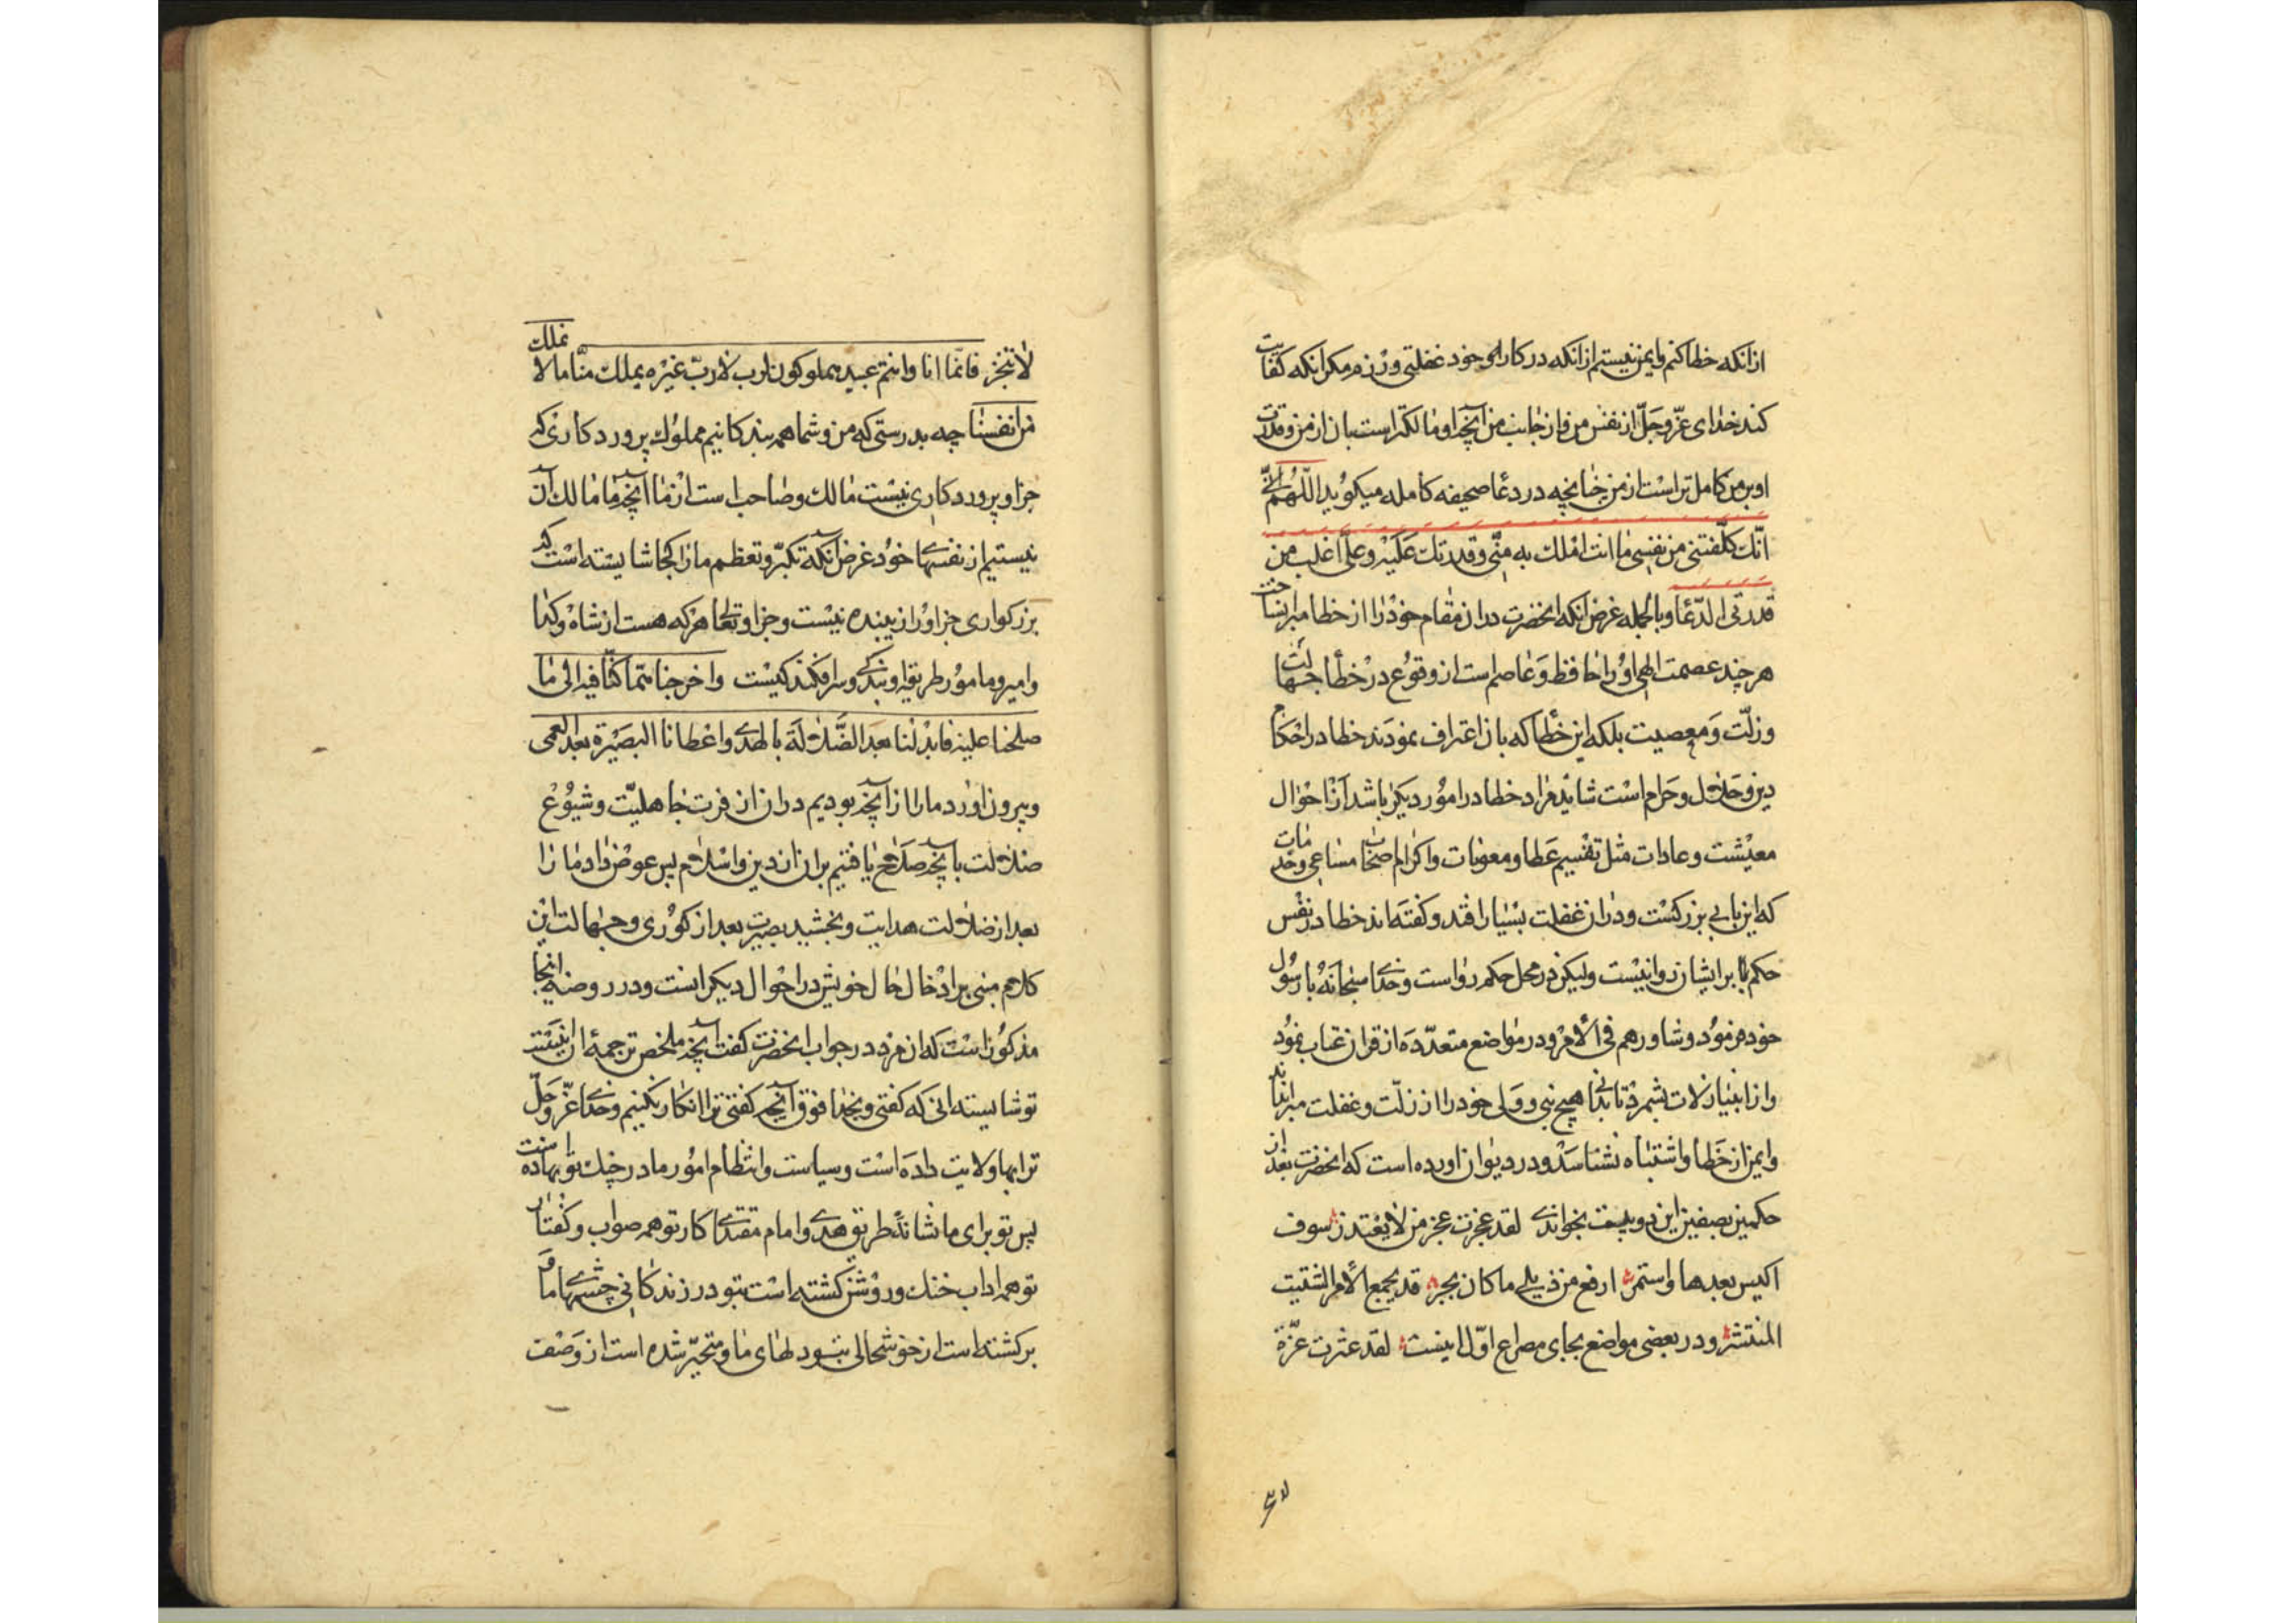 ازانکه خطا کنم وایمن نیستم ازانکه در کارهای خود غفلتی ورزم مکر انکه کفایت
کند خدای عزّ وجلّ از نفس من واز جانب من آنچه او مالکتر است بان از من وقدرت
او بر من کامل تر است از من چنانچه در دعا صحیفه کامله میکوید اللّهم
انّک کلّفتنی من نفسی ما انت املک به منّی وقدرتک علیه وعلیّ اغلب من
قدرتی الدّعا وبالجمله غرض انکه انحضرت دران مقام خود را از خطا مبرا نساخت
هر چند عصمت الهی او را حافظ وعاصم است از وقوع در خطا جهالت
وزلّت ومعصیت بلکه این خطا که بان اعتراف نمودند خطا در احکام
دین وحلال وحرام است شاید مراد خطا در امور دیکر باشد از احوال
معیشت وعادات مثل تقسیم عطا ومعونات واکرام اصحاب مساعی وخدمات
که این بابی بزرکست ودران غفلت بسیار افتد وکفته اند خطا در نفس
حکم بر ایشان روا نیست ولیکن در محل حکم رواست وخدای سبحانه با رسول
خود فرمود وشاورهم فی الامر ودر مواضع متعدّده از قران عتاب نمود
واز انبیا زلات شمرد تا بدانی هیچ نبی وولی خود را از زلّت وغفلت مبرا نداند
وایمن از خطا واشتباه نشناسد ودر دیوان اورده است که انحضرت بعد از
حکمین بصفین این دو بیت بخواندی لقد عجزت عجز من لا یعتذر سوف
اکیس بعدها واستمر ارفع من ذیلی ما کان یجر قد یجمع الامر الشتیت
المنتشر ودر بعضی مواضع بجای مصراع اوّل اینست لقد عثرت عثرة
لا تنجبر فانّما انا وانتم عبید مملوکون لرب لا ربّ غیره یملک منّا ما لا نملک
من انفسنا چه بدرستی که من وشما همه بندکانیم مملوک پروردکاری که
جز او پروردکاری نیست مالک وصاحب است از ما آنچه ما مالک آن
نیستیم از نفسهای خود غرض آنکه تکبّر وتعظم ما را کجا شایسته است که
بزرکواری جز او را زیبنده نیست وجز او تعالی هر که هست از شاه وکدا
وامیر ومامور طریقه او بندکی وسرافکندکیست واخرجنا ممّا کنّا فیه الی ما
صلحنا علیه فابدلنا بعد الضّلالة بالهدی واعطانا البصیرة بعد العمی
وبیرون اورد ما را از آنچه بودیم دران از فترت جاهلیّت وشیوع
ضلالت بآنچه صلاح یافتیم بران از دین واسلام پس عوض داد ما را
بعد از ضلالت هدایت وبخشید بصیرت بعد از کوری وجهالت این
کلام مبنی بر ادخال حال خویش در احوال دیکرانست ودر روضه اینجا
مذکور است که ان مرد در جواب انحضرت کفت آنچه ملخص ترجمهٔ ان اینست
تو شایسته انی که کفتی وبخدا فوق آنچه کفتی ترا انکار نکنیم وخدای عزّ وجلّ
ترا بها ولایت داده است وسیاست وانتظام امور ما در چنک تو نهاده است
پس تو برای ما نشانهٔ طریق هدی وامام مقتدا کار تو همه صواب وکفتار
تو همه اداب خنک وروشن کشته است بتو در زندکانی چشمهای ما و
برکشته است از خوشحالی بتو دلهای ما ومتحیّر شده است از وصف